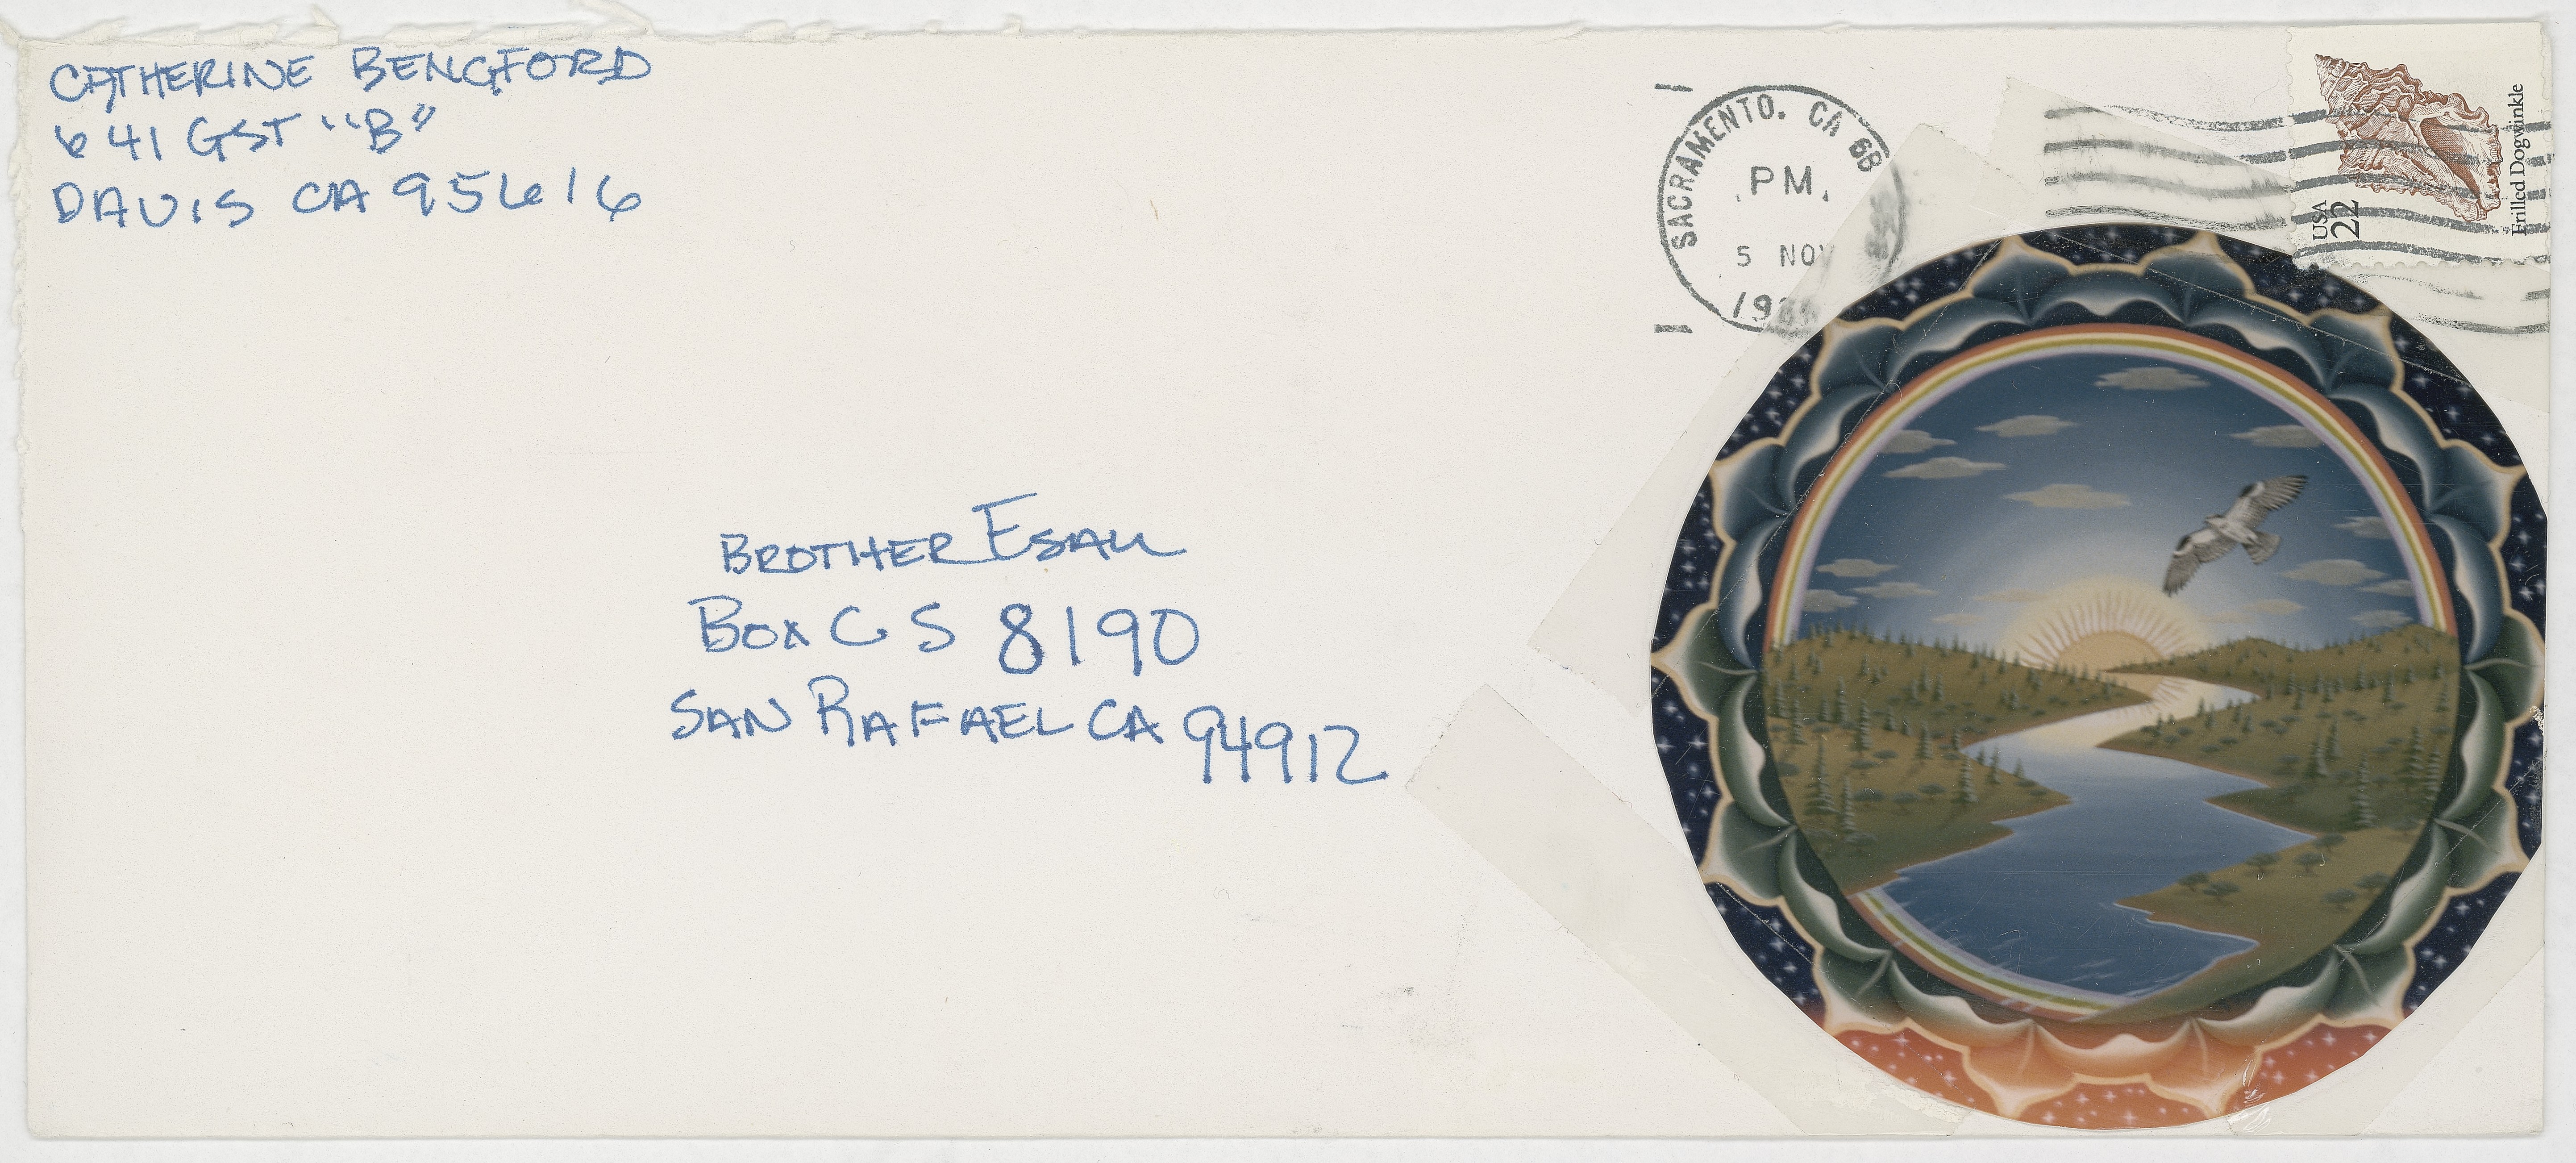 CATHERINE BENGFORD
641 G ST "B"
DAVIS CA 95616
SACRAMENTO, CA
PM
5 NOV
USA
22
Frilled Dogwinkle
BROTHER ESAU
BOX C S 8190
SAN RAFAEL CA 94912